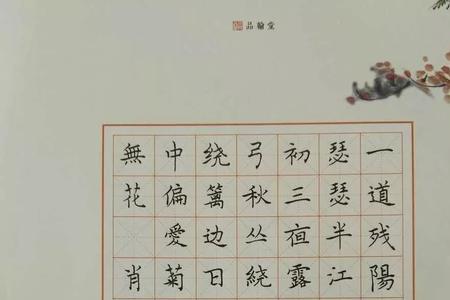 品翰堂
一道残陽
瑟瑟半江
初三亱露
弓秋丛繞
绕篱边日
中偏愛菊
無花 肖